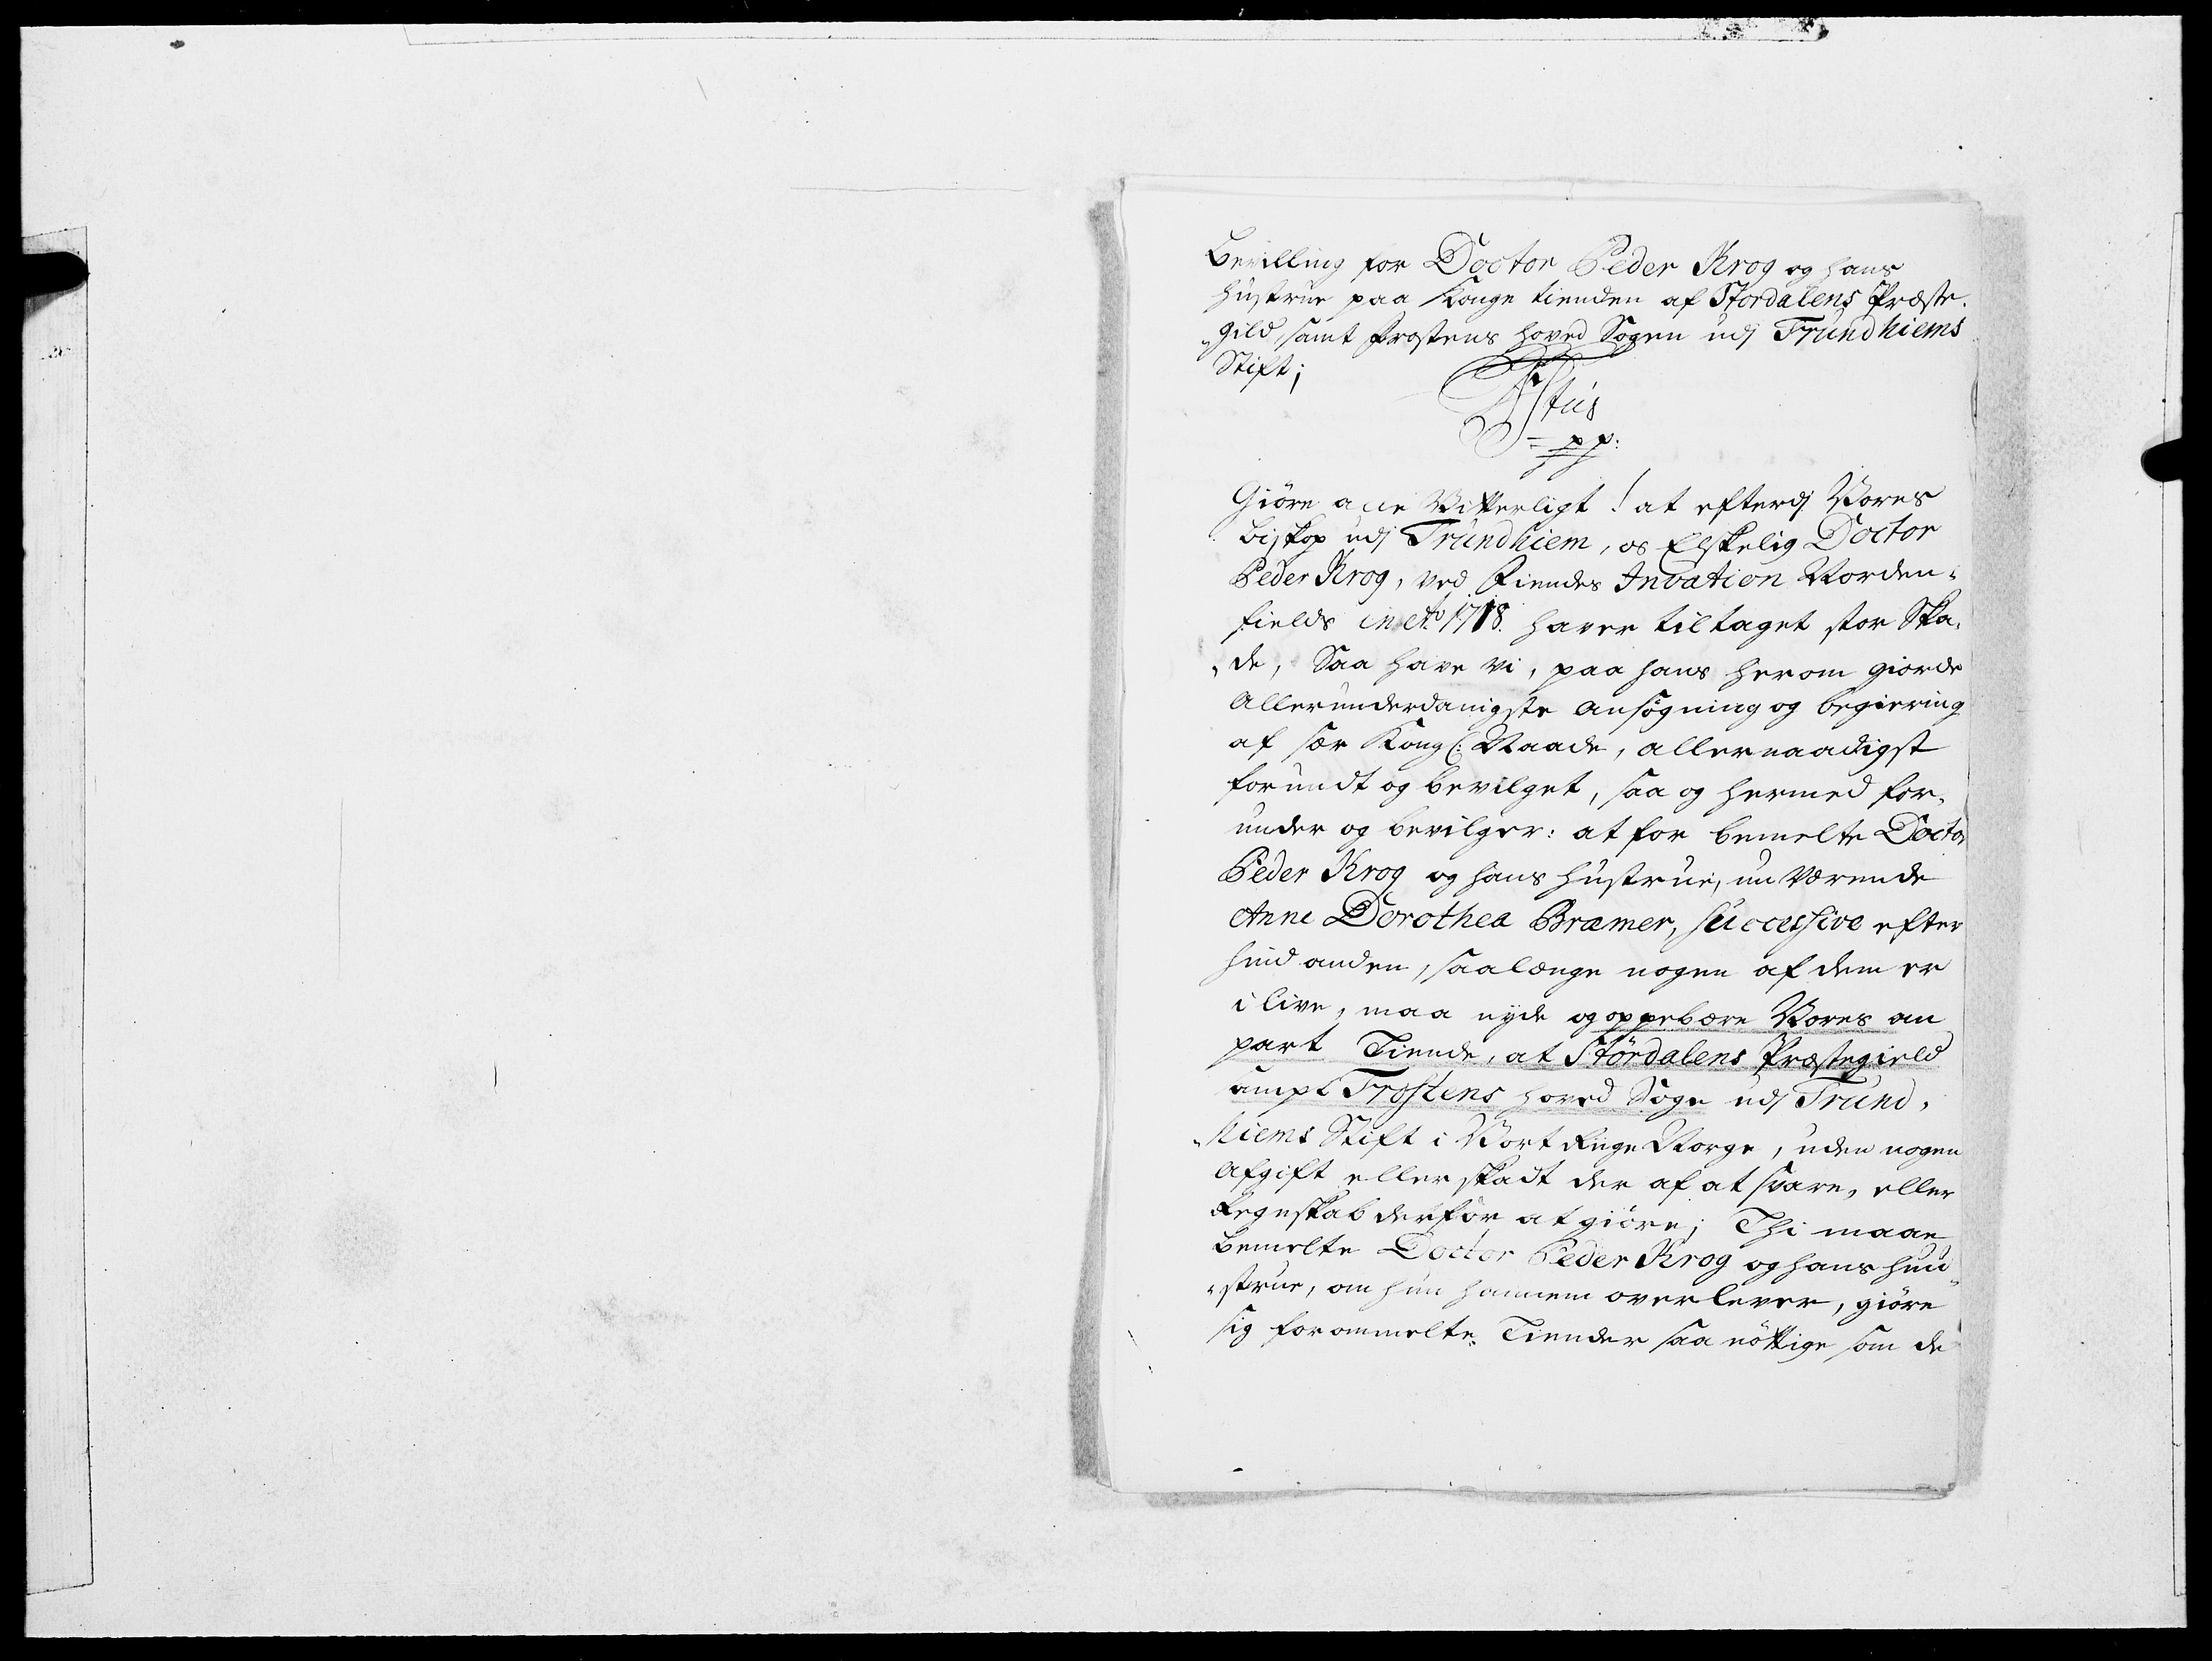 Bevilling for Doctor Peder Krog og hans
Hustrue paa Konge tienden af Stordalens Præste-
gield samt Frostens hoved Sogen udj Trundhiems
Stift;
pp:
Giöre alle Vitterligt! at efterdj Vores
Biskop udj Trundhiem, os Elskelig Doctor
Peder Krog, ved Fiendes Invation Norden-
fields in Ao 1718. haver tiltaget stor Ska-
de, Saa have vi, paa hans herom giorde
Allerunderdanigste Ansögning og begiering
af sær Kongl: Naade, allernaadigst
forundt og bevilget, saa og hermed for-
under og bevilger: at for bemelte Doctor
Peder Krog og hans Hustrue, nu værende
Anne Dorothea Bræmer, successive efter
hind anden, saalænge nogen af dem er
i live, maa nyde og oppebære Vores an
part Tiende, at Stördalens Præstegield
sampt Frostens hoved Sogn udj Trund-
hiems Stift i Vort Rige Norge, uden nogen
Afgift eller skadt der af at svare, eller
Regnskab derfor at giöre; Thi maae
bemelte Doctor Peder Krog og hans Huu-
strue, om hun hannem overlever, giöre
sig forommelte Tiender saa nöttige som de